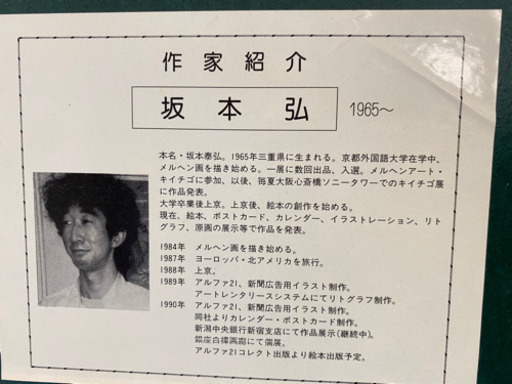 作家紹介
坂本弘 1965〜
本名・坂本泰弘。1965年三重県に生まれる。京都外国語大学在学中、
メルヘン画を描き始める。一展に数回出品、入選。メルヘンアート・
キイチゴに参加、以後、毎夏大阪心斎橋ソニータワーでのキイチゴ展
に作品発表。
大学卒業後上京。上京後、絵本の創作を始める。
現在、絵本、ポストカード、カレンダー、イラストレーション、リト
グラフ、原画の展示等で作品を発表。
1984年 メルヘン画を描き始める。
1987年 ヨーロッパ・北アメリカを旅行。
1988年 上京。
1989年 アルファ21、新聞広告用イラスト制作。
アートレンタリースシステムにてリトグラフ制作。
1990年 アルファ21、新聞広告用イラスト制作。
同社よりカレンダー・ポストカード制作。
新潟中央銀行新宿支店にて作品展示(継続中)。
銀座白樺画廊にて個展。
アルファ21コレクト出版より絵本出版予定。